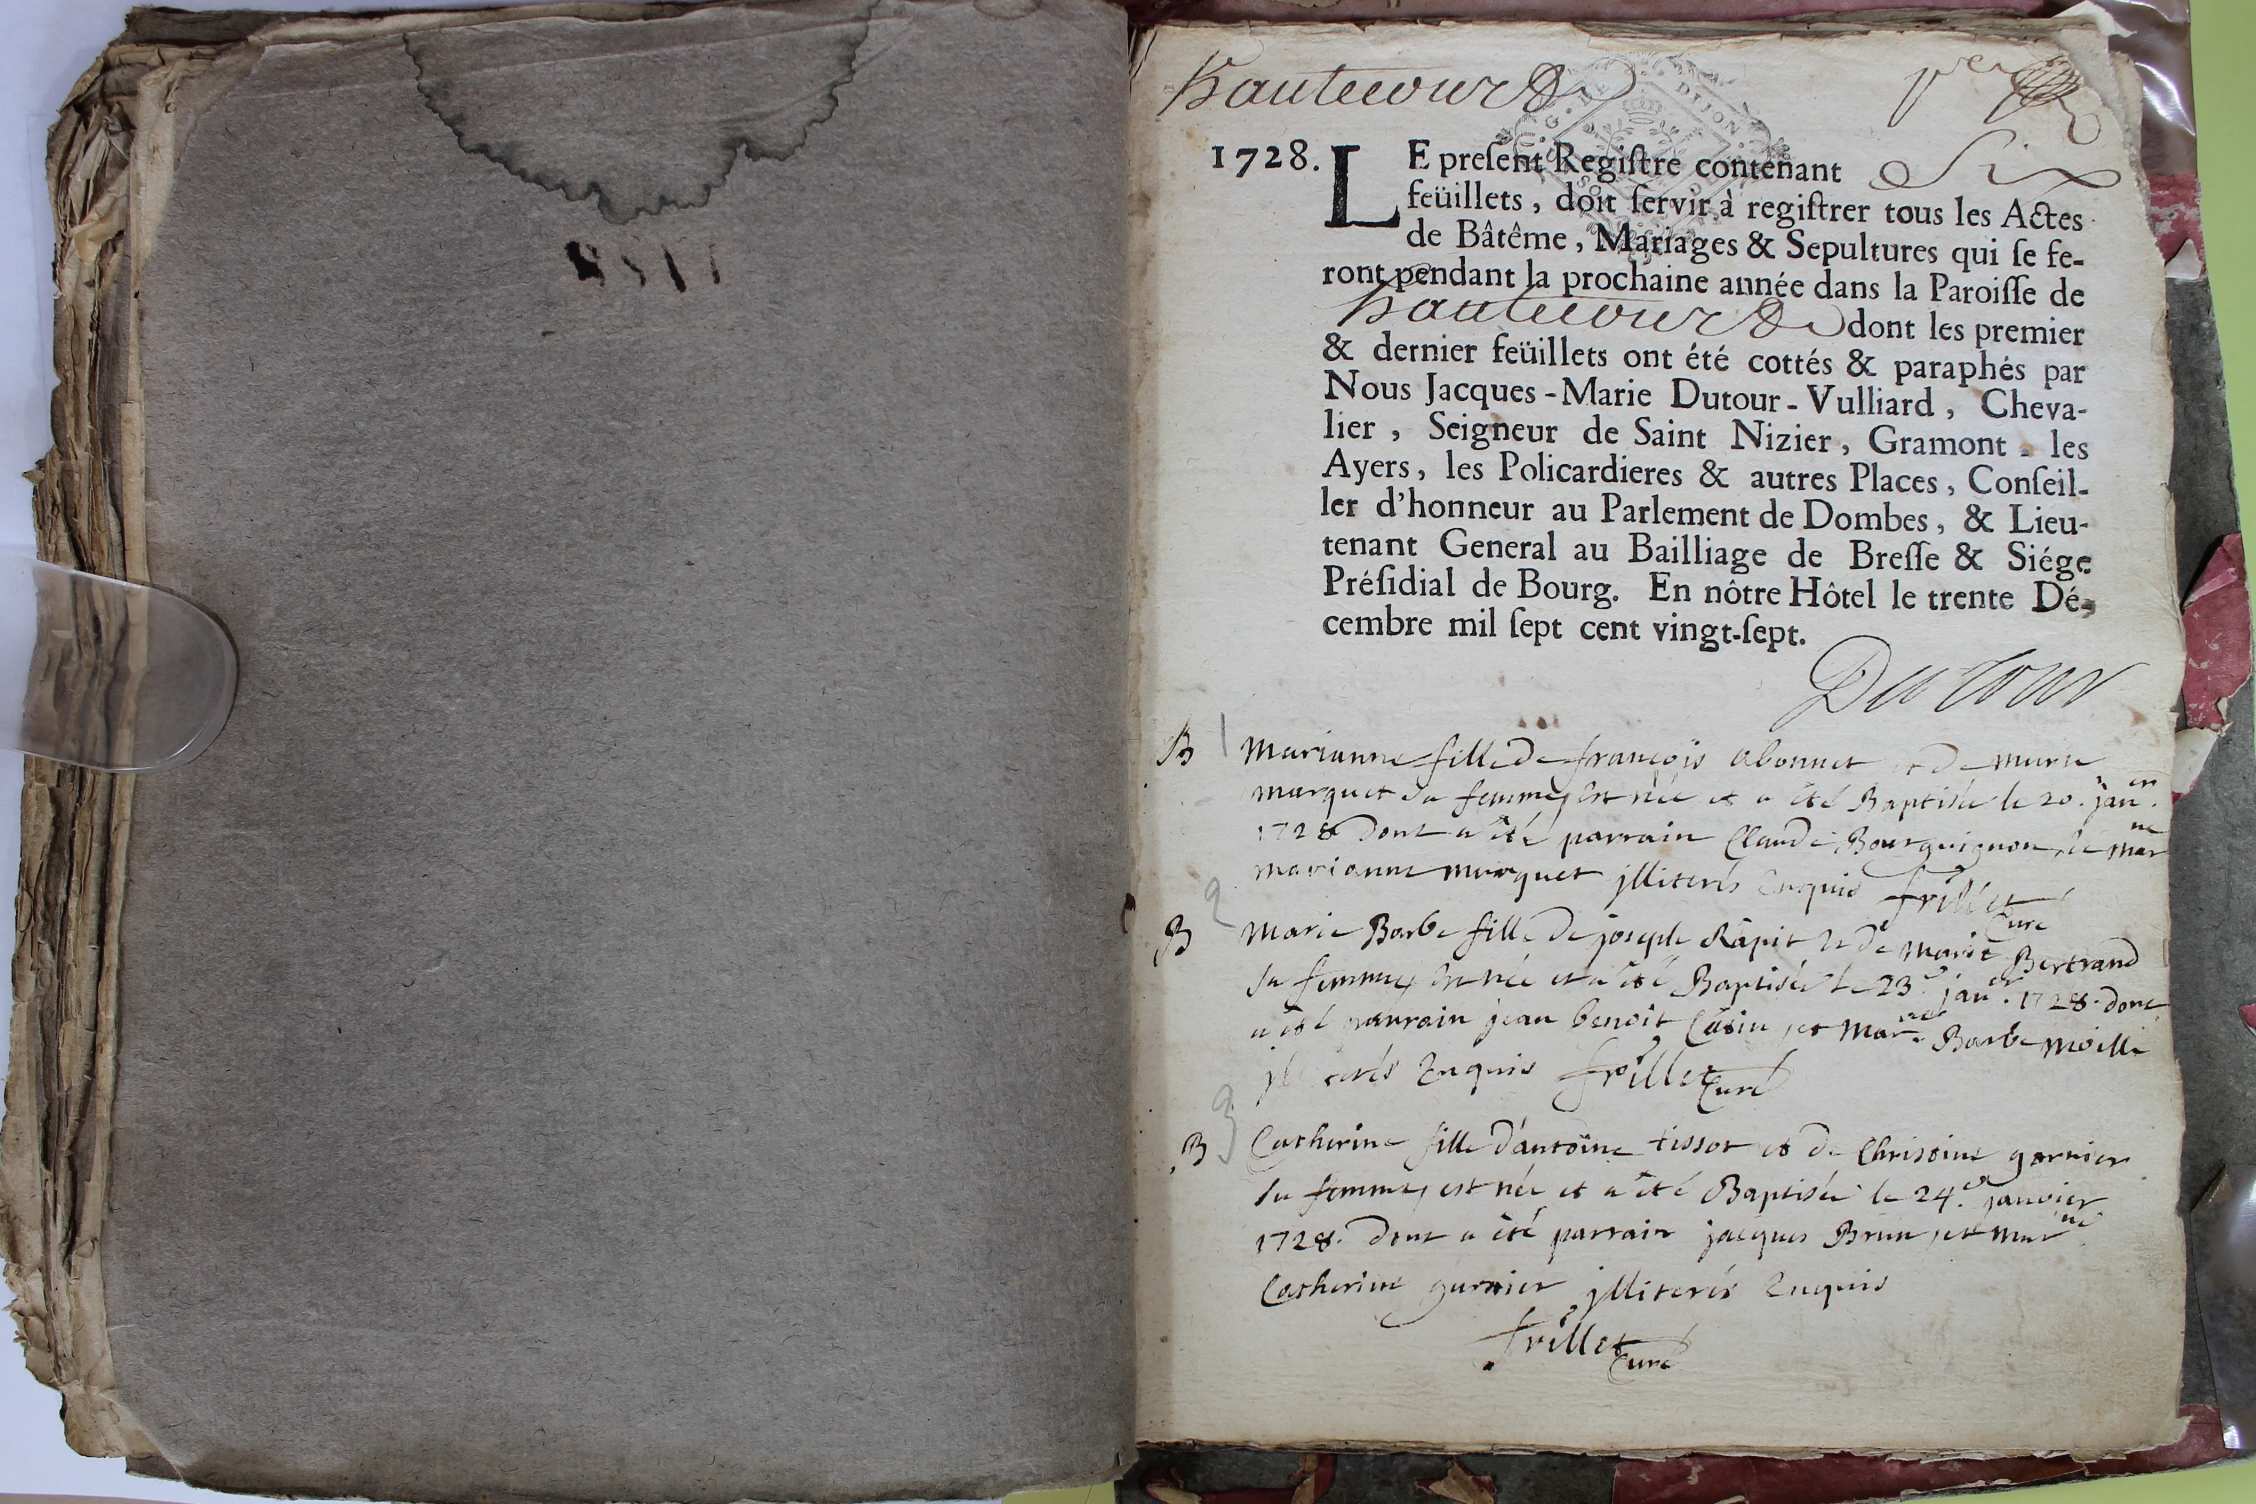 hautecourt
DIJON
1728. LE preſent Regiſtre contenant Six
feüillets, doit ſervir à regiſtrer tous les Actes
de Bâtême, Mariages & Sepultures qui ſe fe-
ront pendant la prochaine année dans la Paroiſſe de
hautecourt dont les premier
& dernier feüillets ont été cottés & paraphés par
Nous Jacques-Marie Dutour-Vulliard, Cheva-
lier, Seigneur de Saint Nizier, Gramont, les
Ayers, les Policardieres & autres Places, Conſeil-
ler d'honneur au Parlement de Dombes, & Lieu-
tenant General au Bailliage de Breſſe & Siége
Préſidial de Bourg. En nôtre Hôtel le trente Dé-
cembre mil ſept cent vingt-ſept.
Dutour
B 1 Marianne fille de françois abonnet et de marie
marquet sa femme, est née et a été Baptisée le 20. janer.
1728 Dont a été parrain Claude Bourguignon, et marne
marianne marquet jlliterés Enquis frillet
Curé
B 2 Marie Barbe fille de joseph Rapit et de marie Bertrand
sa femme, est née et a été Baptisée le 23e janer. 1728. dont
a été parrain jean benoit Cusin, et marne Barbe moille
jlliterés Enquis frillet
Curé
B 3 Catherine fille d'antoine tissot et de Christine garnier
sa femme, est née et a été Baptisée le 24e. janvier
1728. Dont a été parrain jacques Brun, et marne
Catherine garnier jlliterés Enquis
frillet
Curé